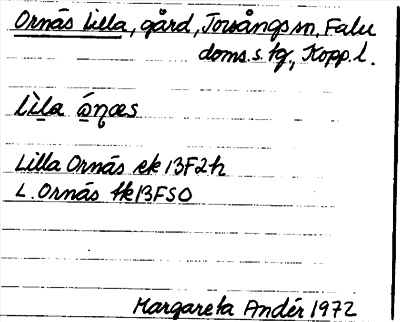 Ornäs Lilla, gård, Torsångs sn, Falu
doms. s. tg., Kopp. l.
lìla ó̱ɳæs
Lilla Ornäs ek 13F2h
L. Ornäs tk 13FSO
Margareta Andér 1972